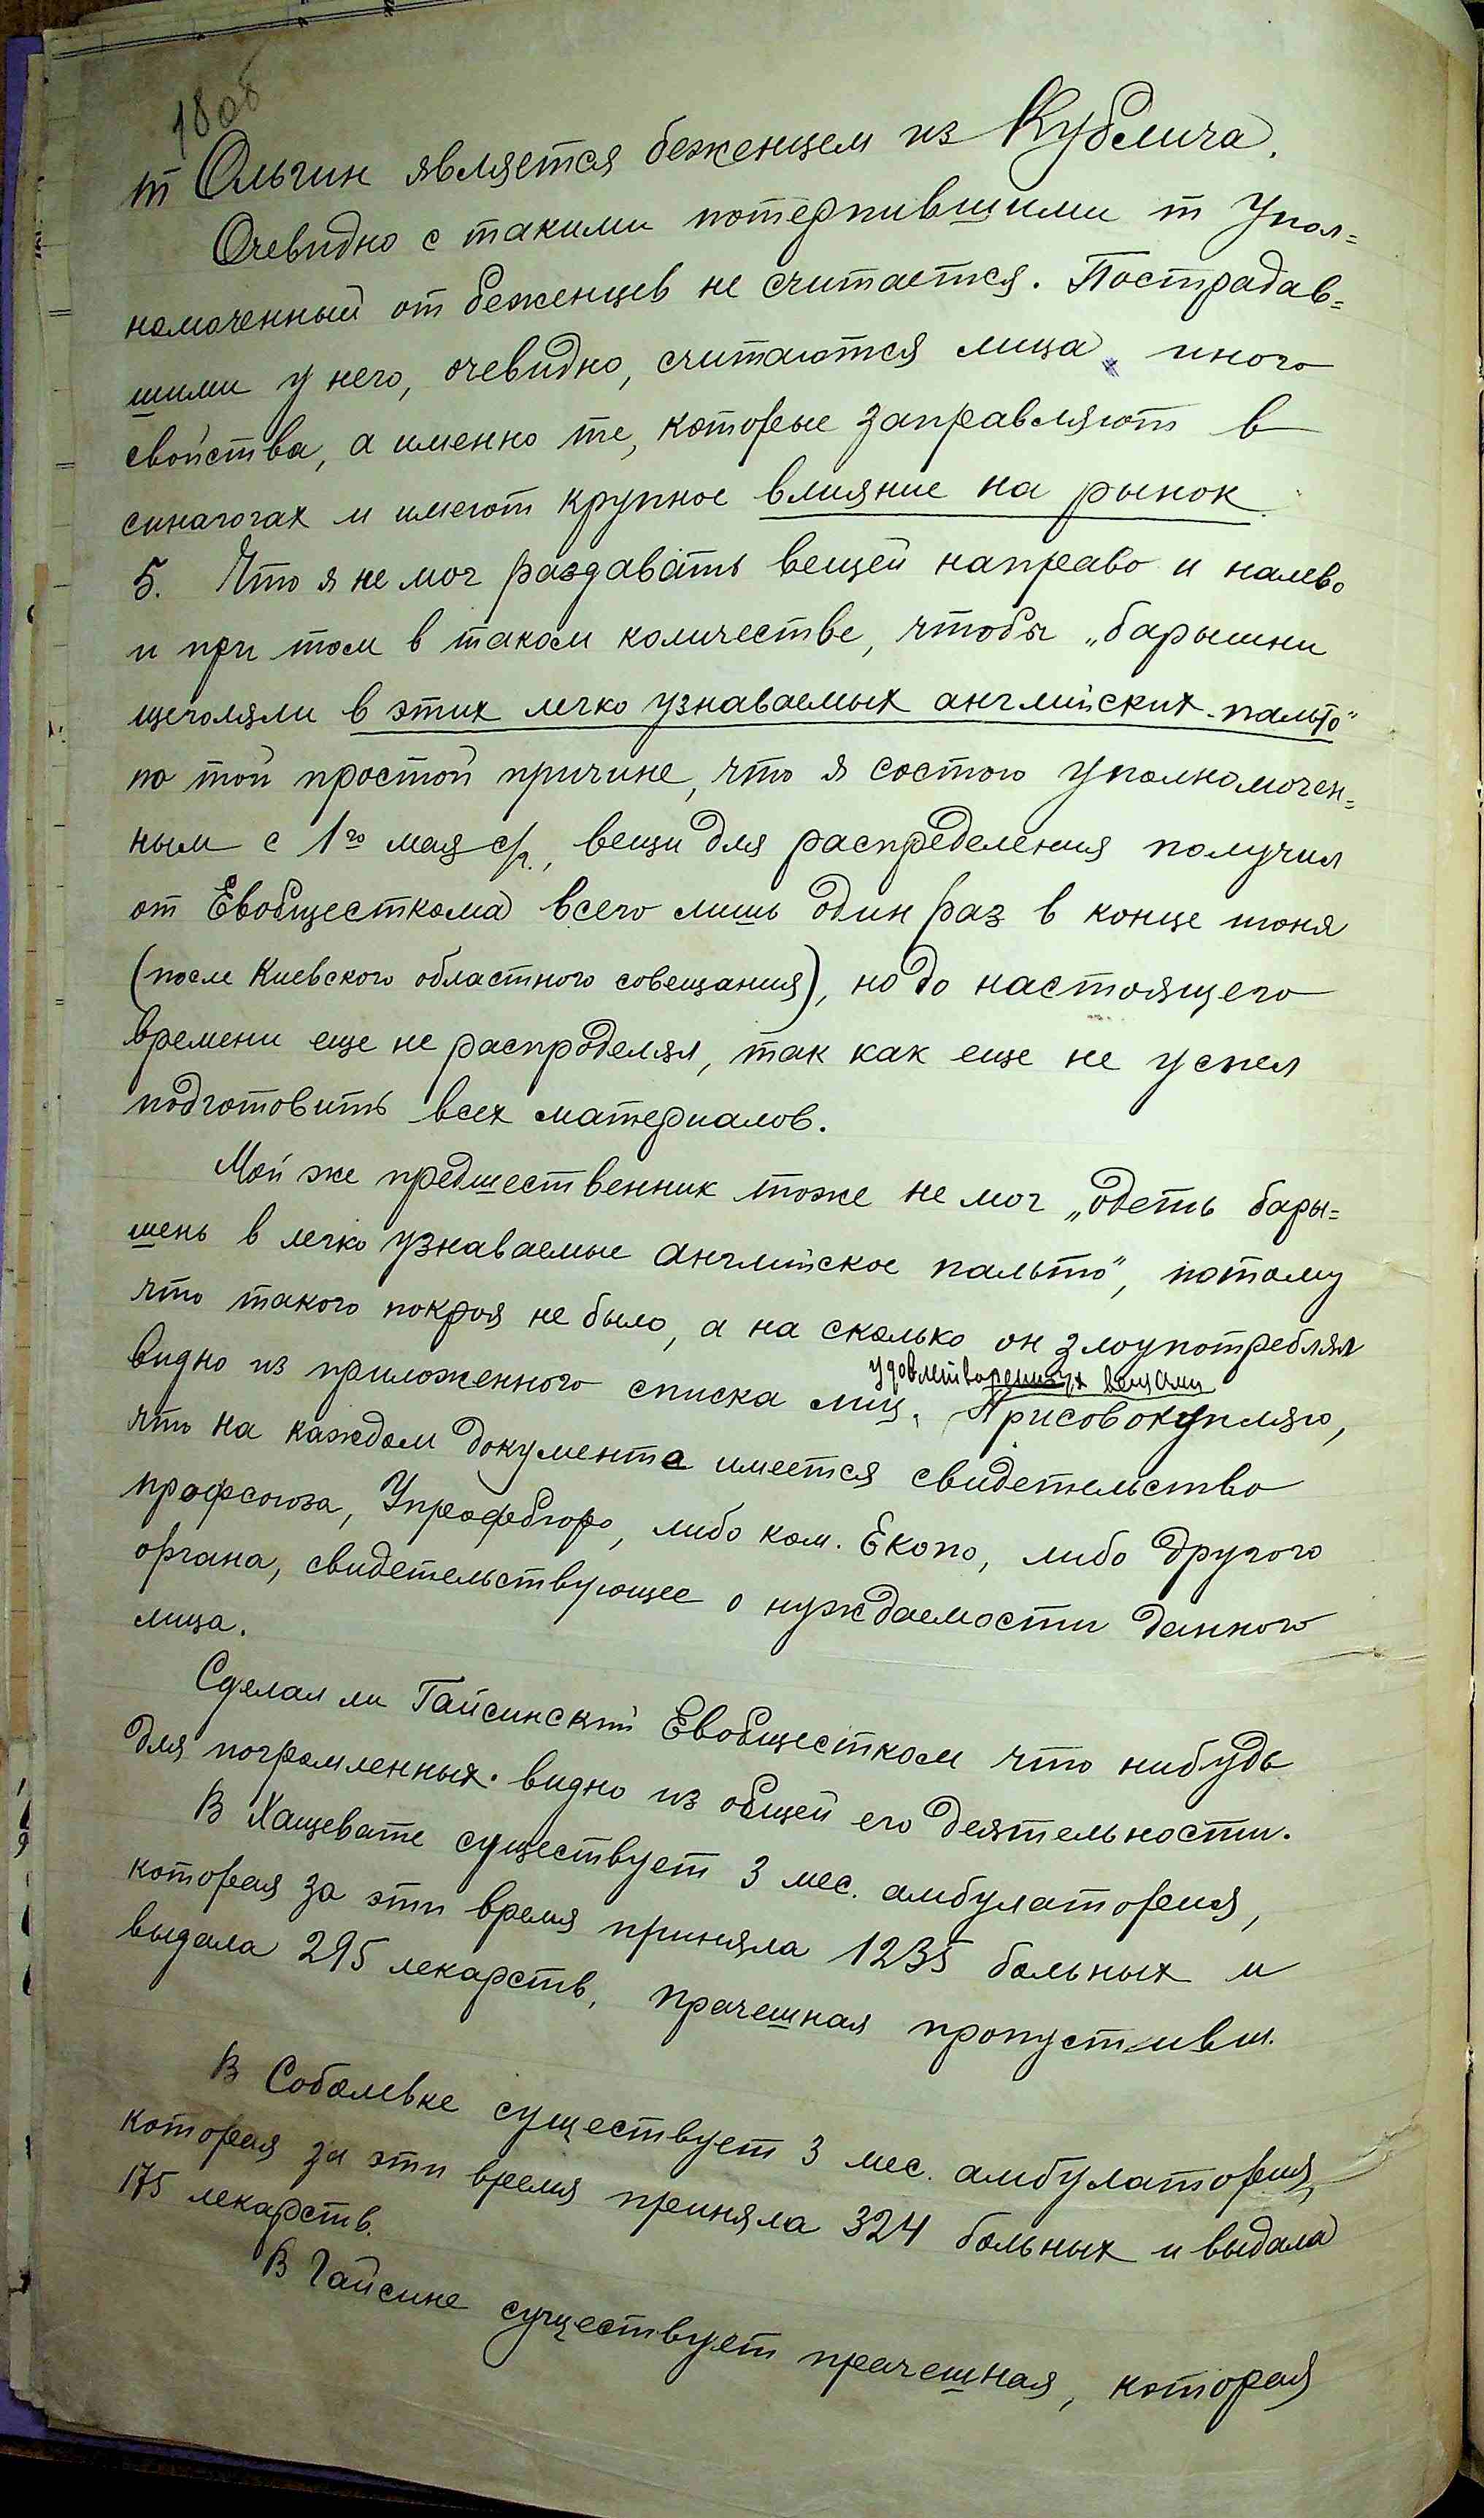 18об
т Ольгин является беженцем из Кублича.
Очевидно с такими потерпившими т Упол=
номоченный от беженцев не считается. Пострадав=
шими у него, очевидно, считаются лица иного
свойства, а именно те, которые заправляют в
синагогах и имеют крупное влияние на рынок.
5. Что я не мог раздавать вещей направо и налево
и при том в таком количестве, чтобы „барышни
щеголяли в этих легко узнаваемых английских пальто"
по той простой причине, что я состою уполномочен=
ным с 1го мая с/г., вещи для распределения получил
от Евобщесткома всего лишь один раз в конце июня
(после Киевского областного совещания), но до настоящего
времени еще не распределял, так как еще не успел
подготовить всех материалов.
Мой же предшественник тоже не мог „одеть бары=
шень в легко узнаваемые английское пальто", потому
что такого покроя не было, а на сколько он злоупотреблял
удовлетворенных вещами
видно из приложенного списка лиц, Присовокупляю,
что на каждом документе имеется свидетельство
профсоюза, Упрофбюро, либо ком. Екопо, либо другого
органа, свидетельствующее о нуждаемости данного
лица.
Сделал ли Гайсинский Евобщестком что нибудь
для погромленных видно из общей его деятельности.
В Хащевате существует 3 мес. амбулатория,
которая за эти время приняла 1235 больных и
выдала 295 лекарств, прачешная пропустивш.
В Соболевке существует 3 мес. амбулатория,
которая за эти время приняла 324 больных и выдала
175 лекарств.
В Гайсине существует прачешная, которая